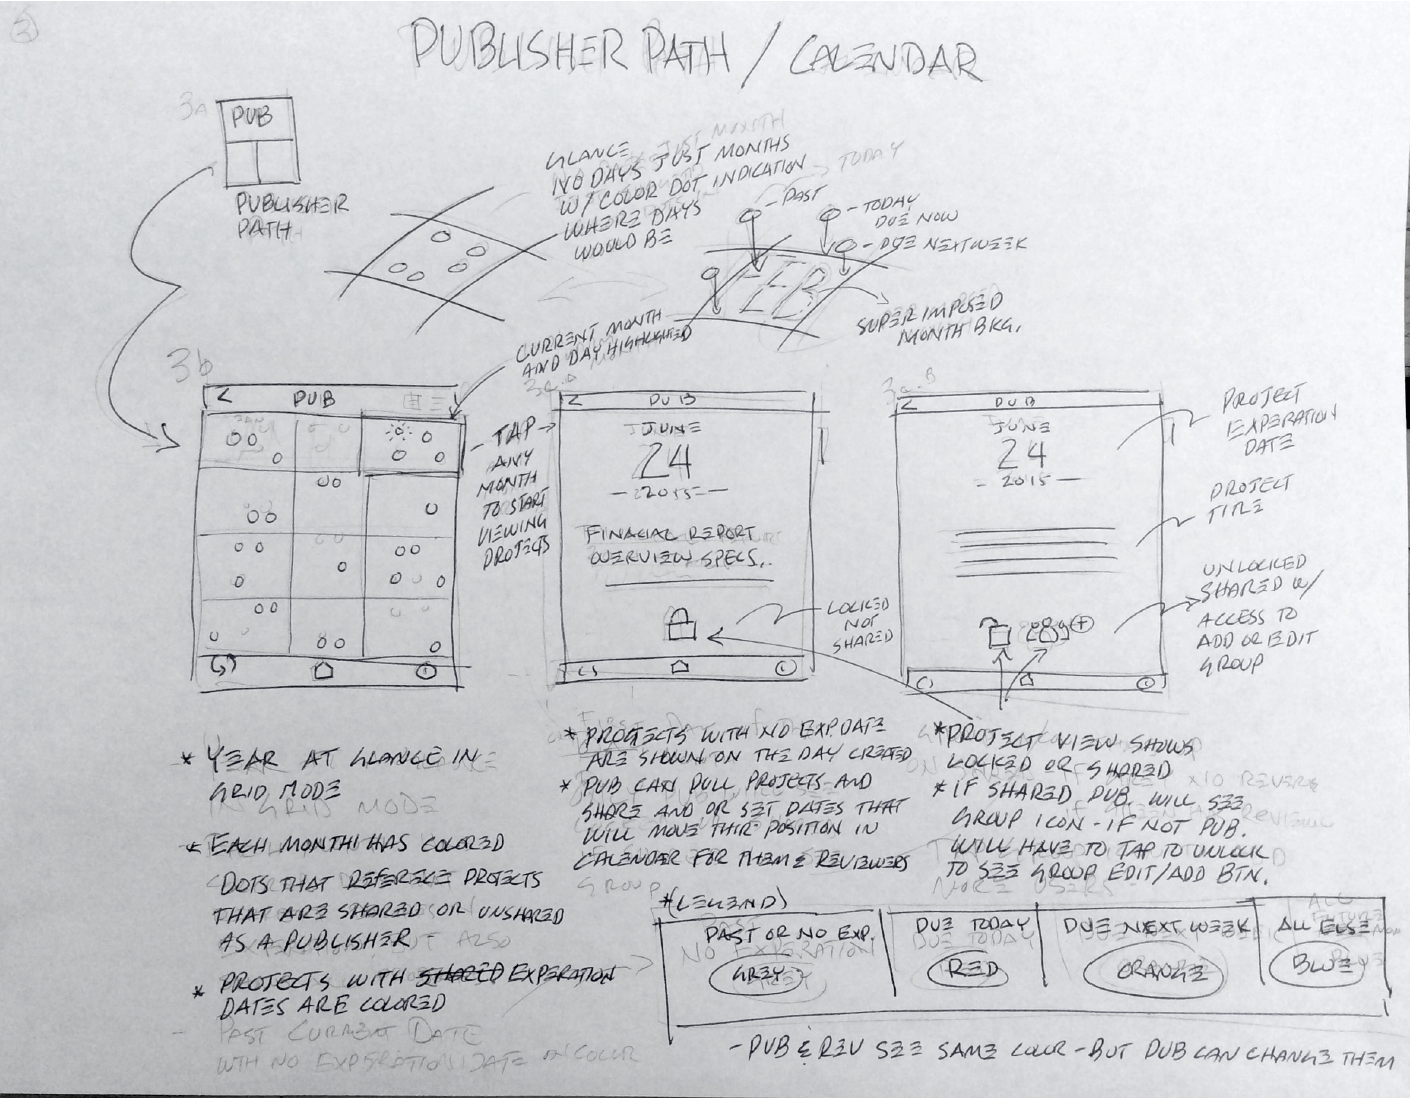 3
PUBLISHER PATH / CALENDAR
3A
PUB
PUBLISHER
PATH
GLANCE
NO DAYS JUST MONTHS
W/ COLOR DOT INDICATION
WHERE DAYS
WOULD BE
TODAY
- PAST
- TODAY
DUE NOW
- DUE NEXT WEEK
FEB
SUPER IMPOSED
MONTH BKG.
CURRENT MONTH
AND DAY HIGHLIGHTED
3b
< PUB
- TAP →
ANY
MONTH
TO START
VIEWING
PROJECTS
3c.A
< PUB
JUNE
24
- 2015 -
FINACIAL REPORT
OVERVIEW SPECS..
LOCKED
NOT
SHARED
3c.B
< PUB
JUNE
24
- 2015 -
PROJECT
EXPERATION
DATE
PROJECT
TITLE
UNLOCKED
SHARED W/
ACCESS TO
ADD OR EDIT
GROUP
* YEAR AT GLANCE IN
GRID MODE
* EACH MONTH HAS COLORED
DOTS THAT REFERECE PROJECTS
THAT ARE SHARED OR UNSHARED
AS A PUBLISHER
* PROJECTS WITH SHARED EXPERATION
DATES ARE COLORED
- PAST CURRENT DATE
WITH NO EXPERATION DATE IN COLOR
* PROJECTS WITH NO EXP. DATE
ARE SHOWN ON THE DAY CREATED
* PUB CAN PULL PROJECTS AND
SHARE AND OR SET DATES THAT
WILL MOVE THIR POSITION IN
CALENDAR FOR THEM & REVIEWERS
* PROJECT VIEW SHOWS
LOCKED OR SHARED
* IF SHARED PUB. WILL SEE
GROUP ICON - IF NOT PUB.
WILL HAVE TO TAP TO UNLOCK
TO SEE GROUP EDIT/ADD BTN.
* (LEGEND)
PAST OR NO EXP.
GREY
DUE TODAY
RED
DUE NEXT WEEK
ORANGE
ALL ELSE
BLUE
- PUB & REV SEE SAME COLOR - BUT PUB CAN CHANGE THEM